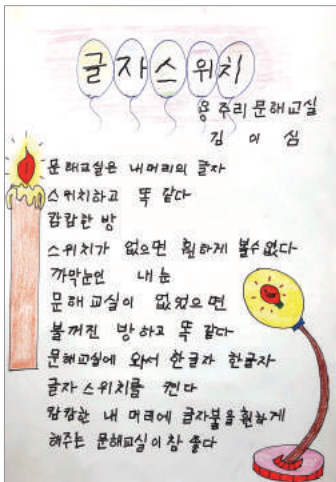 글자스위치
용주리 문해교실
김이심
문해교실은 내머리의 글자
스위치하고 똑 같다
캄캄한 방
스위치가 없으면 훤하게 볼수없다
까막눈인 내 눈
문해교실이 없었으면
불꺼진 방하고 똑 같다
문해교실에 와서 한글자 한글자
글자스위치를 켠다
캄캄한 내 머리에 글자불을 훤하게
해주는 문해교실이 참 좋다